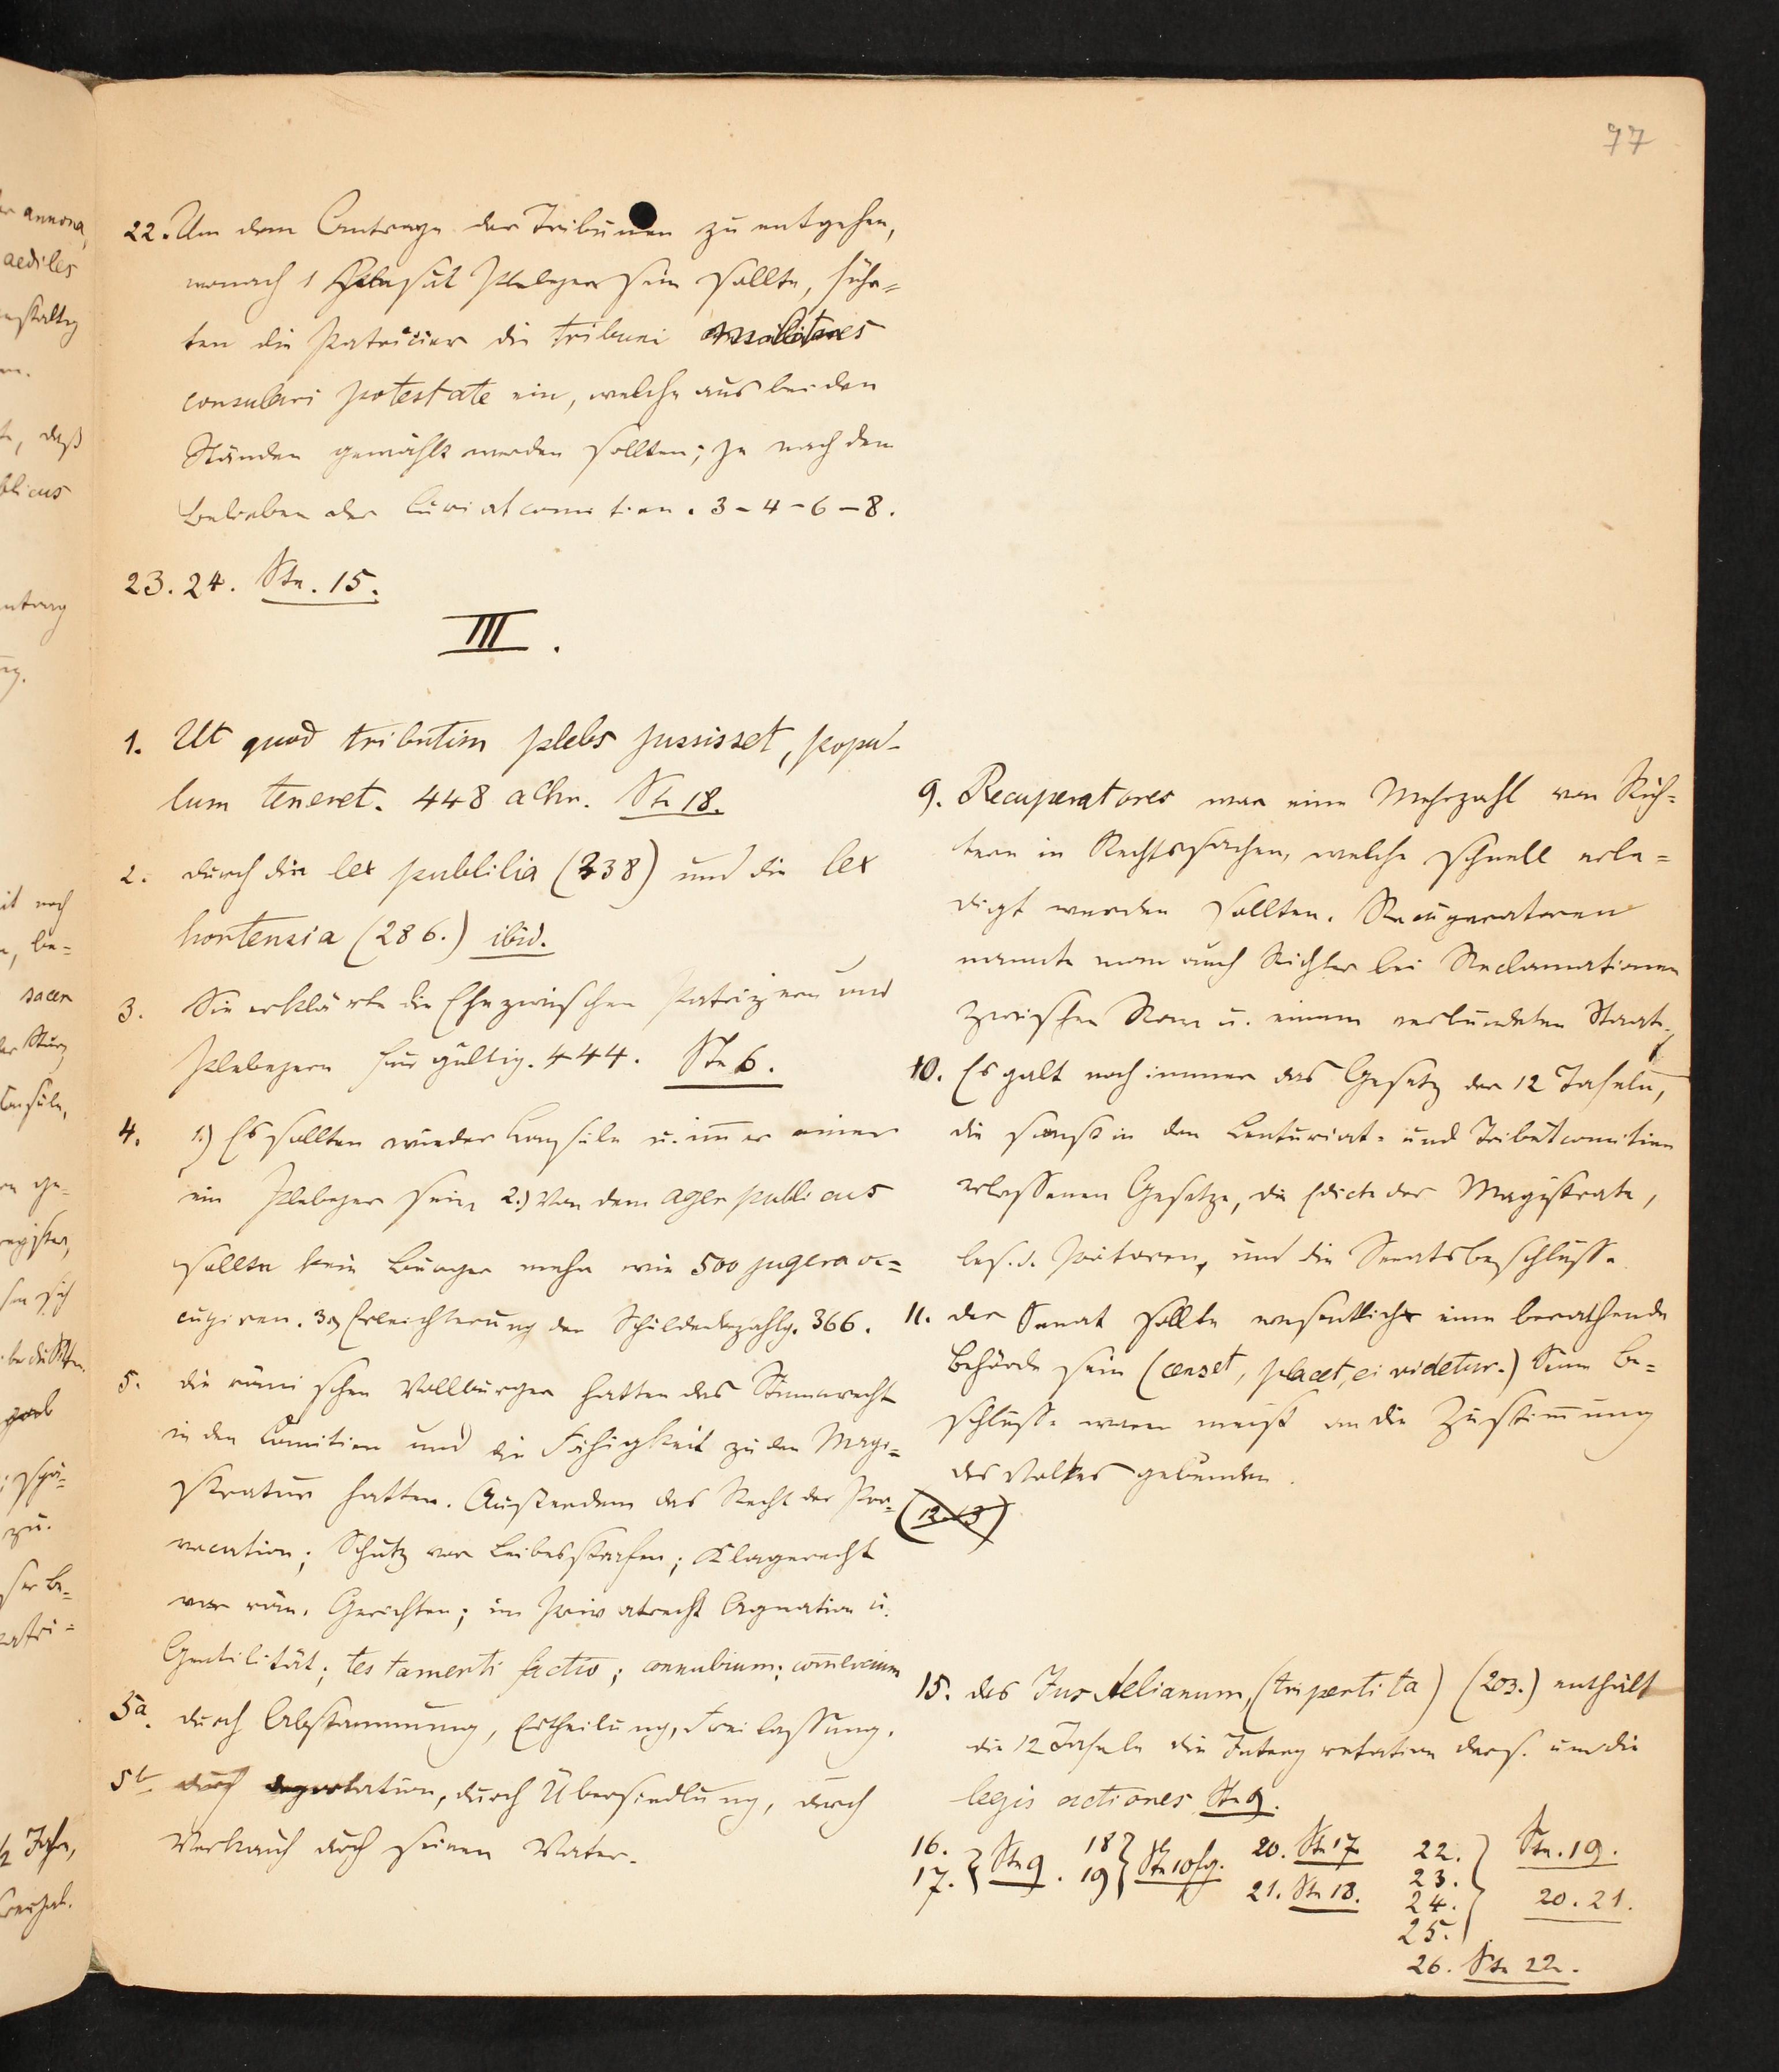 77
22. Um dem Antrage der Tribunen zu entgehen,
wonach 1 Plebejer sein sollte, führ=
ten die Patricier die tribuni militares
consulari potestate ein, welche aus beiden
Ständen gewählt werden sollten; je nach dem
Belieben der Curiatcomitien. 3-4-6-8.
23. 24. Ste. 15.
III.
1. Ut quod tributim plebs jussisset, popu-
lum teneret. 448 a Chr. Ste 18.
2. durch die lex publilia (338) und die lex
hortensia (286.) ibid.
3. Sie erklärte die Ehe zwischen Patriziern und
Plebejern für gültig. 444. Ste 6.
4. 1.) Es sollten wieder Konsuln u. im̅er einer
ein Plebejer sein 2.) Von dem ager publicus
sollte kein Bürger mehr wie 500 jugera oc=
cupiren. 3.) Erleichterung der Schuldenbezahlg. 366.
5. die römischen Vollbürger hatten das Stimmrecht
in den Comitien und die Fähigkeit zu den Magi=
straturen hatten. Außerdem das Recht der Pro=
vocation; Schutz vor Leibesstrafen; Klagerecht
vor röm. Gerichten; im Privatrecht Agnation u.
Gentilität; testamenti factio; connubium; com̅ercium
5a. durch Abstammung, Ertheilung, Freilassung.
5b. durch deportation, durch Übersiedlung, durch
Verkauf durch seinen Vater.
9. Recuperatores war eine Mehrzahl von Rich=
tern in Rechtssachen, welche schnell erle=
digt werden sollten. Recuperatoren
nannte man auch Richter bei Reclamationen
zwischen Rom u. einem verbündeten Staat.
10. Es galt noch immer das Gesetz der 12 Tafeln,
die sonst in den Centuriat- und Tributcomitien
erlassenen Gesetze, die Edicte der Magistrate,
bes. d. Prätoren, und die Senatsbeschlüsse.
11. der Senat sollte wesentlich eine berathende
Behörde sein (censet, placet, ei videtur.) Seine Be=
schlüsse waren meist an die Zustim̅ung
des Volkes gebunden.
(12. 13)
15. das Jus Aelianum, (tripertita) (203.) enthält
die 12 Tafeln die Interpretation ders. und die
legis actiones Ste 9.
16. 17. } Ste 9. 18 19 } Ste 10 fg. 20. Ste 17. 21. Ste 18. 22. 23. 24. 25. } Ste. 19. 20. 21.
26. Ste 22.